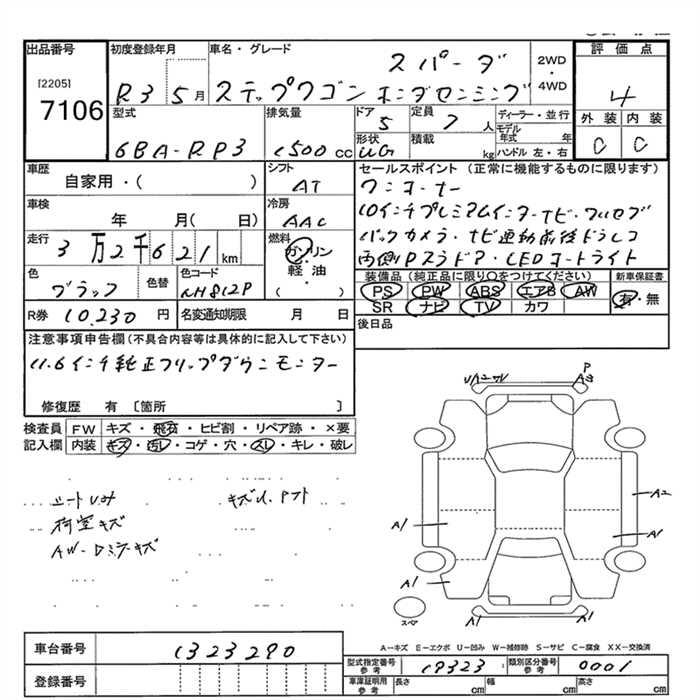 出品番号
[2205]
7106
初度登録年月
R3 5月
車名・グレード
スパーダ
ステップワゴン ホンダセンシング
2WD
・
4WD
評価点
4
外装 内装
C C
型式
6BA-RP3
排気量
1500 cc
ドア
5
定員
7人
形状
積載
kg
ディーラー・並行
モデル年式 年
ハンドル 左・右
車歴
自家用・( )
シフト
AT
車検
年 月( 日)
冷房
AAC
走行
3万2千621km
燃料
ガソリン
軽油
( )
色
ブラック
色替
色コード
NH812P
R券 10,230円
名変通知期限 月 日
セールスポイント(正常に機能するものに限ります)
ワンオーナー
10インチプレミアムインターナビ・フルセグ
バックカメラ・ナビ連動前後ドラレコ
両側Pスラドア・LEDオートライト
装備品(純正品に限り○をつけてください)
PS PW ABS エアB AW
SR ナビ TV カワ
新車保証書
有・無
後日品
注意事項申告欄(不具合内容等は具体的に記入して下さい)
11.6インチ純正フリップダウンモニター
修復歴 有〔箇所 〕
検査員記入欄
FW キズ・飛石・ヒビ割・リペア跡・×要
内装 キズ・汚レ・コゲ・穴・スレ・キレ・破レ
シートU.汚
荷室キズ
AW-Dミラーキズ
P
A3
A2
A1
A1
A1
A1
A1
スペア
A-キズ E-エクボ U-凹み W-補修跡 S-サビ C-腐食 XX-交換済
車台番号 1323290
登録番号
型式指定番号 参考 19323
類別区分番号 参考 0001
車庫証明用 参考
長さ cm 幅 cm 高さ cm